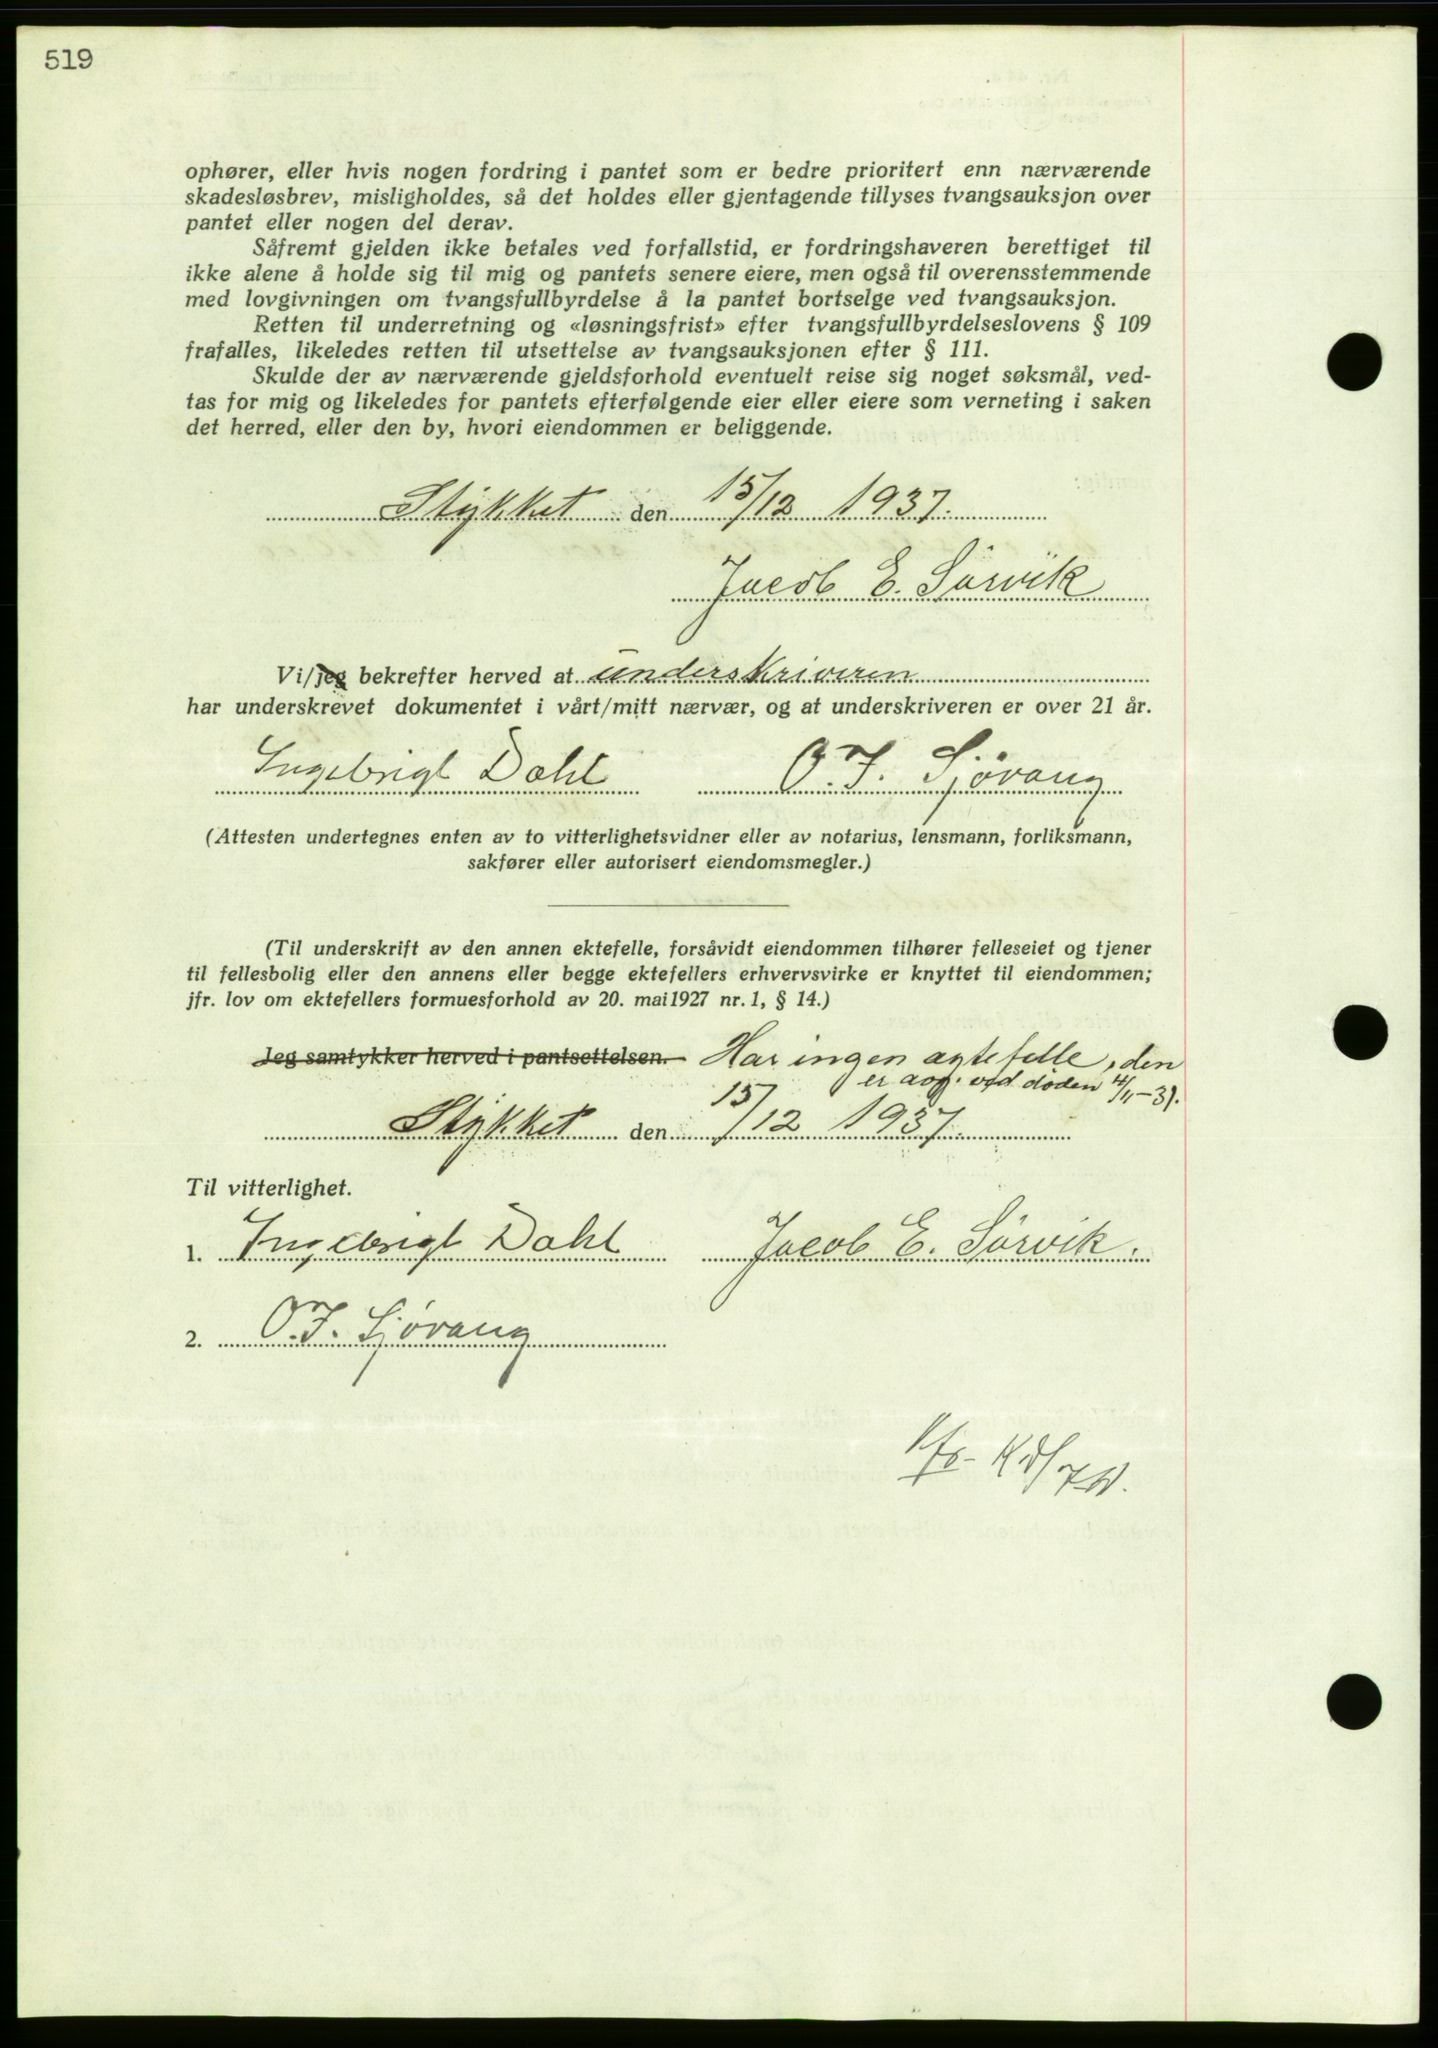 519
ophører, eller hvis nogen fordring i pantet som er bedre prioritert enn nærværende
skadesløsbrev, misligholdes, så det holdes eller gjentagende tillyses tvangsauksjon over
pantet eller nogen del derav.
Såfremt gjelden ikke betales ved forfallstid, er fordringshaveren berettiget til
ikke alene å holde sig til mig og pantets senere eiere, men også til overensstemmende
med lovgivningen om tvangsfullbyrdelse å la pantet bortselge ved tvangsauksjon.
Retten til underretning og «løsningsfrist» efter tvangsfullbyrdelseslovens § 109
frafalles, likeledes retten til utsettelse av tvangsauksjonen efter § 111.
Skulde der av nærværende gjeldsforhold eventuelt reise sig noget søksmål, ved-
tas for mig og likeledes for pantets efterfølgende eier eller eiere som verneting i saken
det herred, eller den by, hvori eiendommen er beliggende.
Stykket den 15/12 1937.
Jacob E. Sörvik
Vi/jeg bekrefter herved at underskriveren
har underskrevet dokumentet i vårt/mitt nærvær, og at underskriveren er over 21 år.
Ingebrigt Dahl O.J. Sjøvang
(Attesten undertegnes enten av to vitterlighetsvidner eller av notarius, lensmann, forliksmann,
sakfører eller autorisert eiendomsmegler.)
(Til underskrift av den annen ektefelle, forsåvidt eiendommen tilhører felleseiet og tjener
til fellesbolig eller den annens eller begge ektefellers erhvervsvirke er knyttet til eiendommen;
jfr. lov om ektefellers formuesforhold av 20. mai 1927 nr. 1, § 14.)
Jeg samtykker herved i pantsettelsen. Har ingen agtefelle, den
er avg. ved døden 4/11-31.
Stykket den 15/12 1937.
Til vitterlighet.
1. Ingebrigt Dahl Jacob E. Sörvik.
2. O.J. Sjøvang